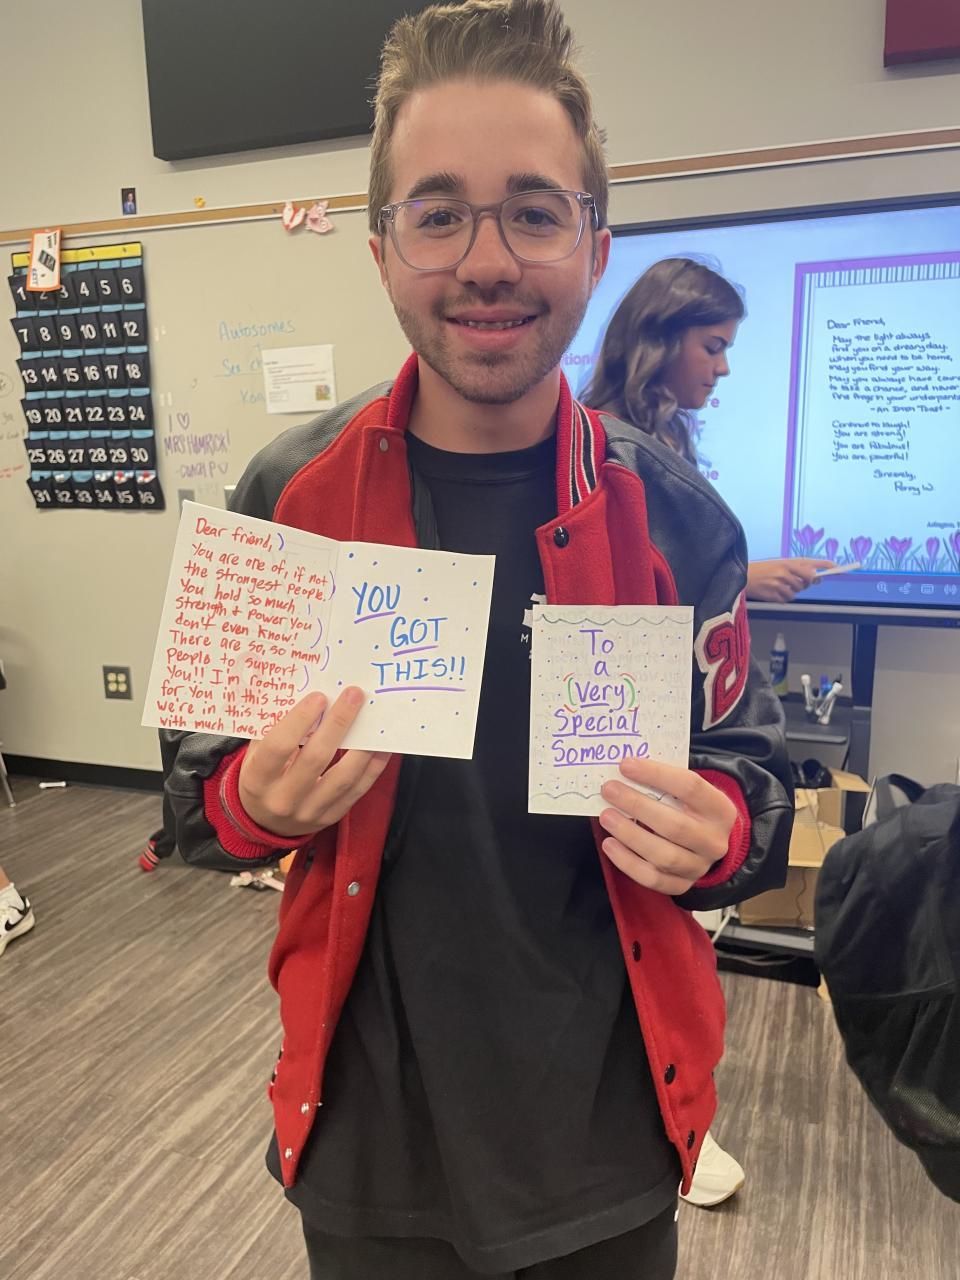 1 2 3 4 5 6
7 8 9 10 11 12
13 14 15 16 17 18
19 20 21 22 23 24
25 26 27 28 29 30
31 32 33 34 35 36
Autosomes
Sex
I ♡
MRS HAMRICK!
Dear friend,
You are one of, if not
the strongest people.
You hold so much
strength & power you
don't even know!
There are so, so many
people to support
you!! I'm rooting
for you in this too
we're in this
with much love,
YOU
GOT
THIS!!
To
a
(Very)
Special
Someone
20
Dear Friend,
May the light always
find you on a dreary day.
When you need to be home,
may you find your way.
May you always have
to take a chance, and never
find frogs in your underpants
- An Irish Toast -
Continue to laugh!
You are strong!
You are fabulous!
You are powerful!
Sincerely,
Penny W.